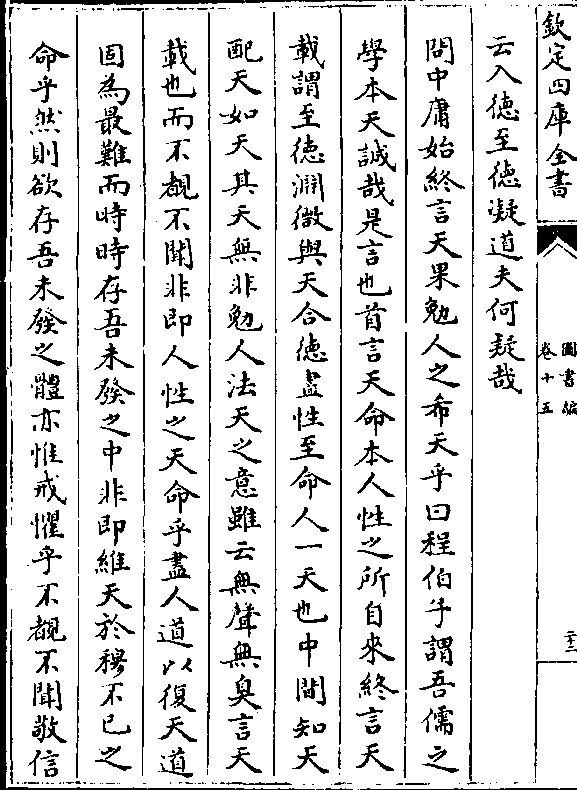 欽定四庫全書
圖書編
卷十五
二十三
云入德至德凝道夫何疑哉
問中庸始終言天果勉人之希天乎曰程伯子謂吾儒之
學本天誠哉是言也首言天命本人性之所自來終言天
載謂至德淵微與天合德盡性至命人一天也中間知天
配天如天其天無非勉人法天之意雖云無聲無臭言天
載也而不覩不聞非即人性之天命乎盡人道以復天道
固為最難而時時存吾未發之中非即維天於穆不已之
命乎然則欲存吾未發之體亦惟戒懼乎不覩不聞敬信